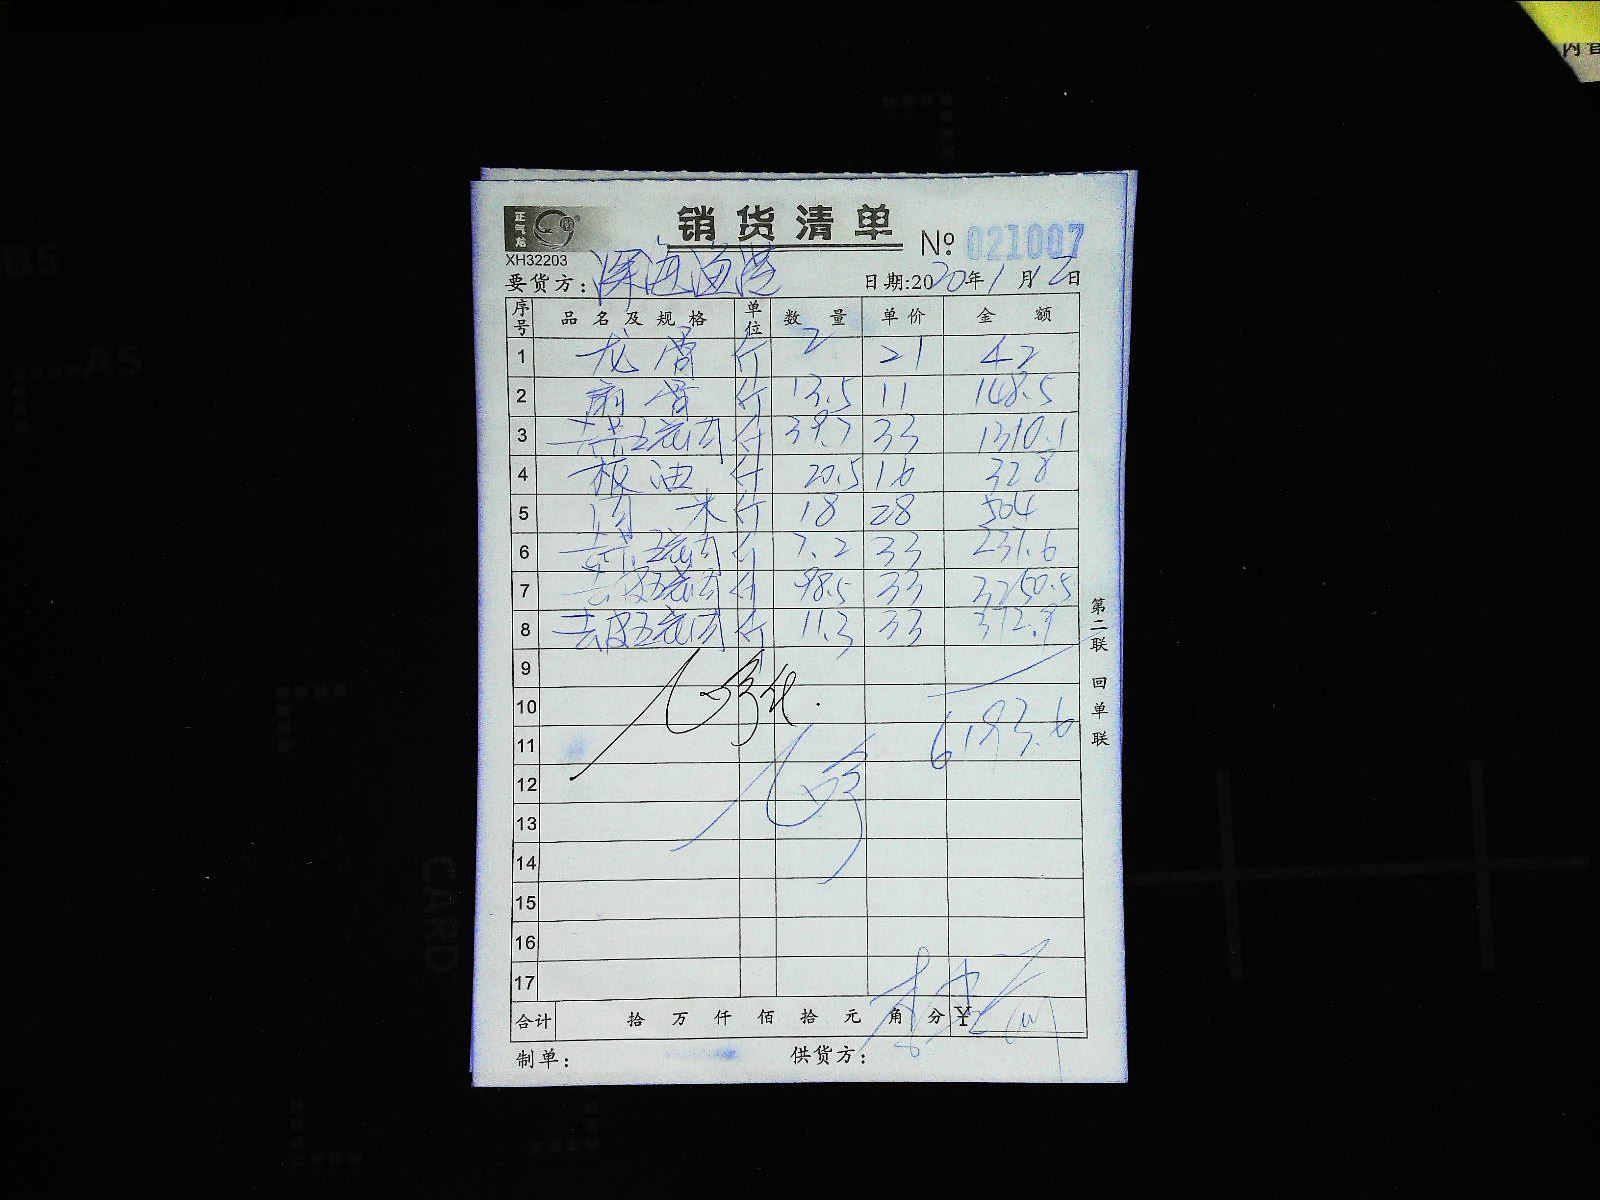 内含
正气龙
销货清单
XH32203
№ 021007
要货方: 深海渔港 日期:2020年1月12日
序号 品名及规格 单位 数量 单价 金额
1 龙骨 斤 2 21 42
2 扇骨 斤 13.5 11 148.5
3 去皮五花肉 斤 39.7 33 1310.1
4 板油 斤 20.5 16 328
5 肉米 斤 18 28 504
6 去皮五花肉 斤 7.2 33 237.6
7 去皮五花肉 斤 98.5 33 3250.5
8 去皮五花肉 斤 11.3 33 372.9
9
10
11 6193.6
12
13
14
15
16
17
合计 拾 万 仟 佰 拾 元 角 分 ¥
制单: 供货方:
第二联 回单联
B5
A5
CARD